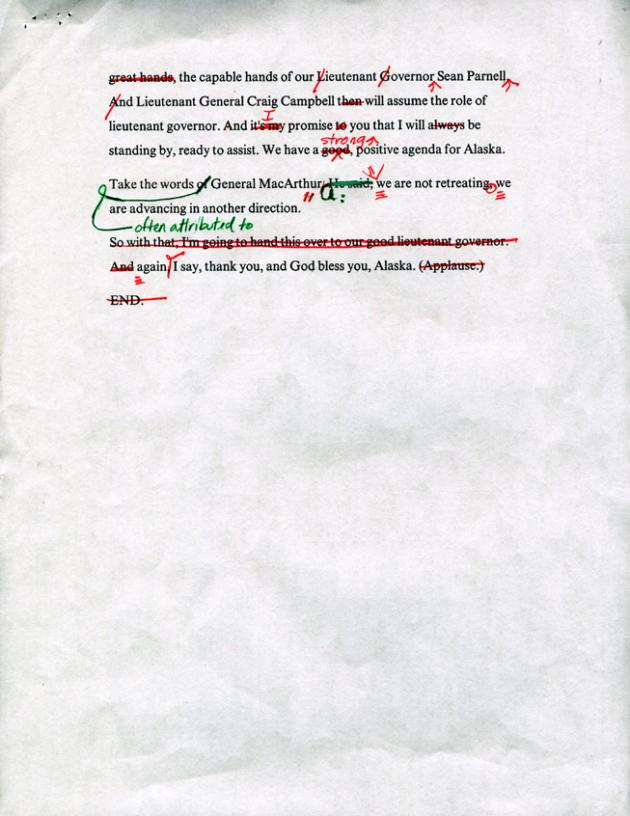 great hands, the capable hands of our Lieutenant Governor Sean Parnell,
And Lieutenant General Craig Campbell then will assume the role of
I
lieutenant governor. And it's my promise to you that I will always be
strong,
standing by, ready to assist. We have a good, positive agenda for Alaska.
Take the words of General MacArthur. He said, we are not retreating, we
" a:
are advancing in another direction.
often attributed to
So with that, I'm going to hand this over to our good lieutenant governor.
And again, I say, thank you, and God bless you, Alaska. (Applause.)
END.